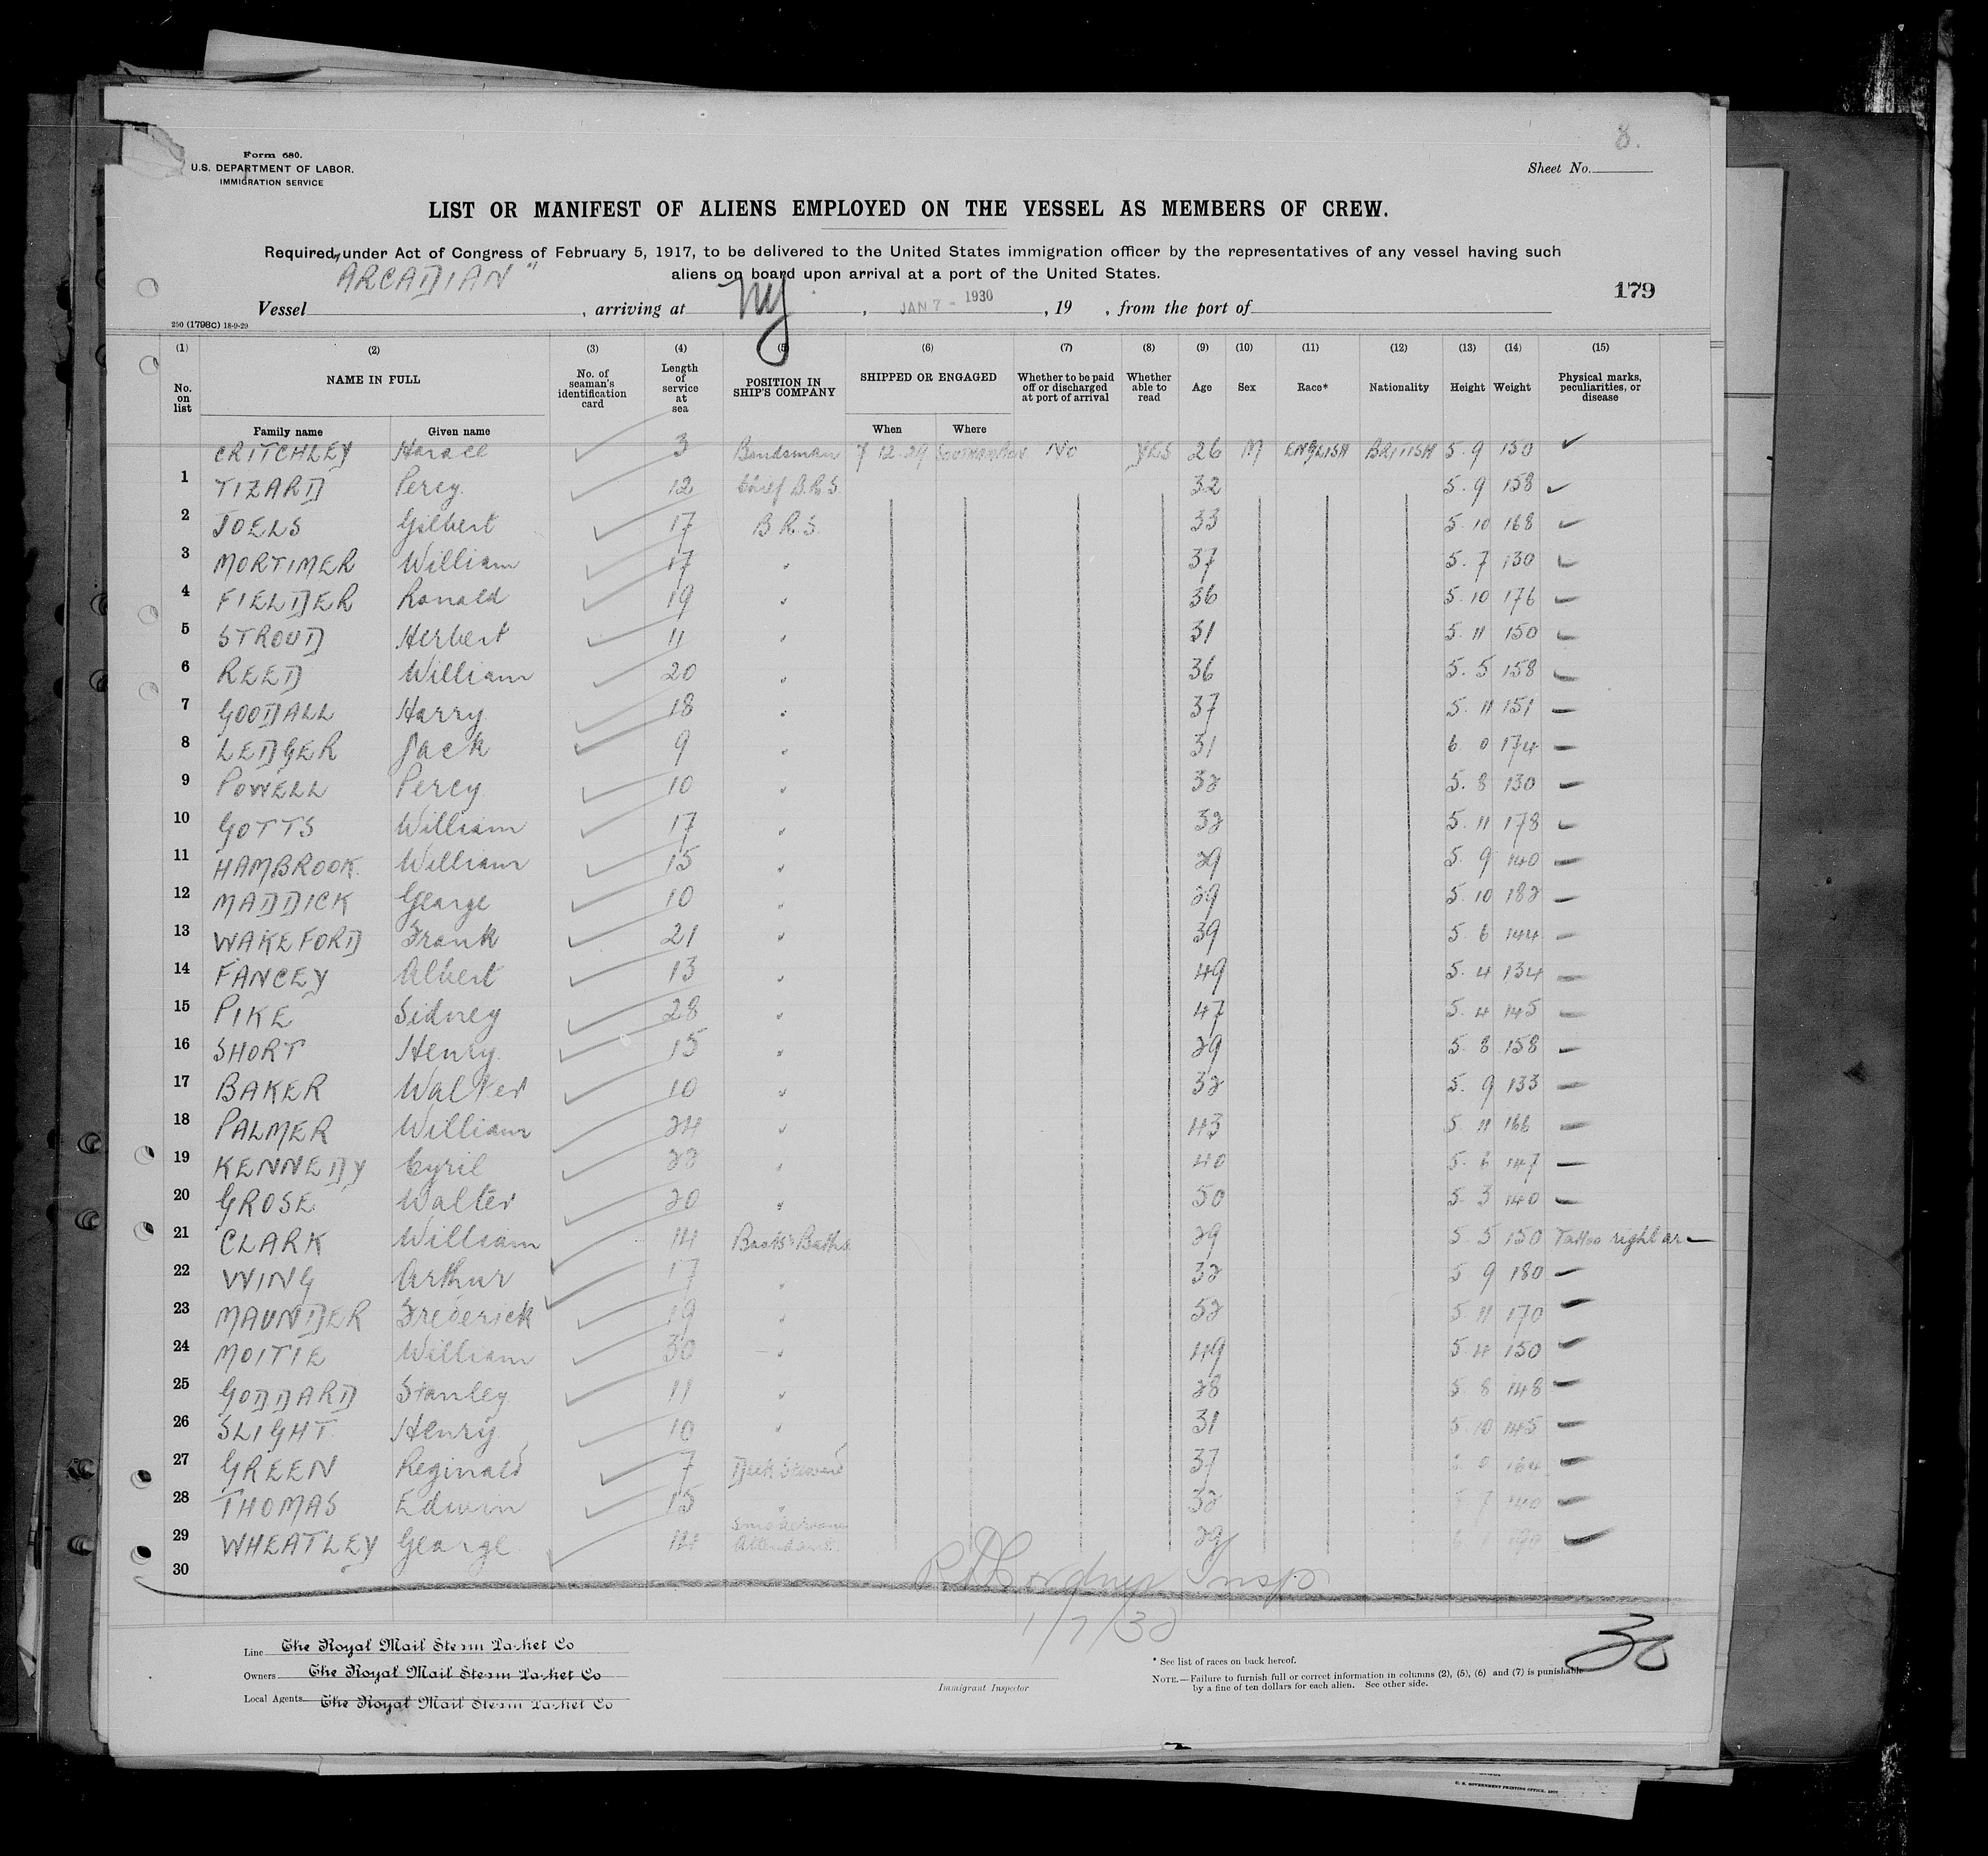 8.
Form 680.
U.S. DEPARTMENT OF LABOR.
IMMIGRATION SERVICE
Sheet No.
LIST OR MANIFEST OF ALIENS EMPLOYED ON THE VESSEL AS MEMBERS OF CREW.
Required under Act of Congress of February 5, 1917, to be delivered to the United States immigration officer by the representatives of any vessel having such
aliens on board upon arrival at a port of the United States.
179
Vessel "ARCADIAN", arriving at NY, JAN 7 - 1930, 19 , from the port of
250 (1798C) 18-9-29
(1) (2) (3) (4) (5) (6) (7) (8) (9) (10) (11) (12) (13) (14) (15)
No. on list NAME IN FULL No. of seaman's identification card Length of service at sea POSITION IN SHIP'S COMPANY SHIPPED OR ENGAGED Whether to be paid off or discharged at port of arrival Whether able to read Age Sex Race* Nationality Height Weight Physical marks, peculiarities, or disease
Family name Given name When Where
CRITCHLEY Horace 3 Bandsman 7 12.29 Southampton No YES 26 M ENGLISH BRITISH 5 9 150
1 TIZARD Percy 12 Chief B.R.S. 32 5. 9 158
2 JOELS Gilbert 17 B.R.S. 33 5. 10 168
3 MORTIMER William 17 " 37 5. 7 130
4 FIELDER Ronald 19 " 36 5. 10 176
5 STROUD Herbert 11 " 31 5. 11 150
6 REED William 20 " 36 5. 5 158
7 GOODALL Harry 18 " 37 5. 11 151
8 LEDGER Jack 9 " 31 6. 0 174
9 POWELL Percy 10 " 32 5. 8 130
10 GOTTS William 17 " 32 5. 11 178
11 HAMBROOK William 15 " 29 5. 9 140
12 MADDICK George 10 " 29 5. 10 182
13 WAKEFORD Frank 21 " 39 5. 6 144
14 FANCEY Albert 13 " 49 5. 4 134
15 PIKE Sidney 28 " 47 5. 4 145
16 SHORT Henry 15 " 29 5. 8 158
17 BAKER Walter 10 " 32 5. 9 133
18 PALMER William 24 " 43 5. 11 166
19 KENNEDY Cyril 22 " 40 5. 6 147
20 GROSE Walter 20 " 50 5. 3 140
21 CLARK William 14 Boots & Baths 29 5 5 150 Tattoo right ar
22 WING Arthur 17 " 32 5 9 180
23 MAUNDER Frederick 19 " 52 5 11 170
24 MOITIE William 30 " 49 5 4 150
25 GODDARD Stanley 11 " 28 5 8 148
26 SLIGHT Henry 10 " 31 5 10 145
27 GREEN Reginald 7 Deck Steward 37 0
28 THOMAS Edwin 15 " 32 5 7 140
29 WHEATLEY George 14 Smokeroom Attendant 29
30
Insp
1/7/30
30
Line The Royal Mail Steam Packet Co
Owners The Royal Mail Steam Packet Co
Local Agents The Royal Mail Steam Packet Co
Immigrant Inspector
* See list of races on back hereof.
NOTE.—Failure to furnish full or correct information in columns (2), (5), (6) and (7) is punishable
by a fine of ten dollars for each alien. See other side.